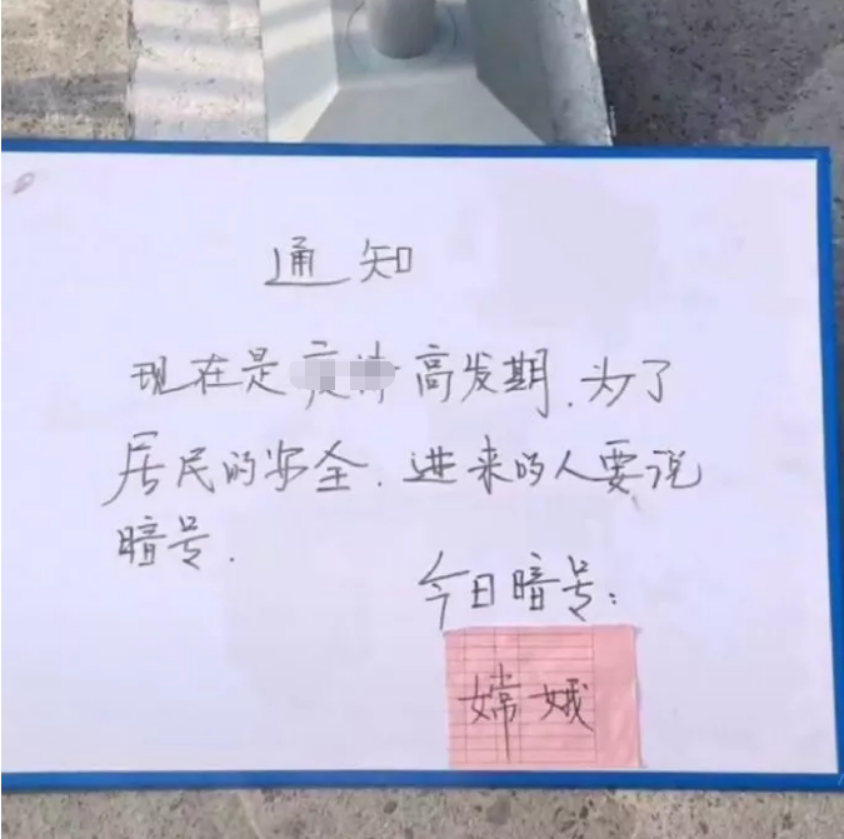 通知
现在是 高发期.为了
居民的安全.进来的人要说
暗号.
今日暗号:
嫦娥